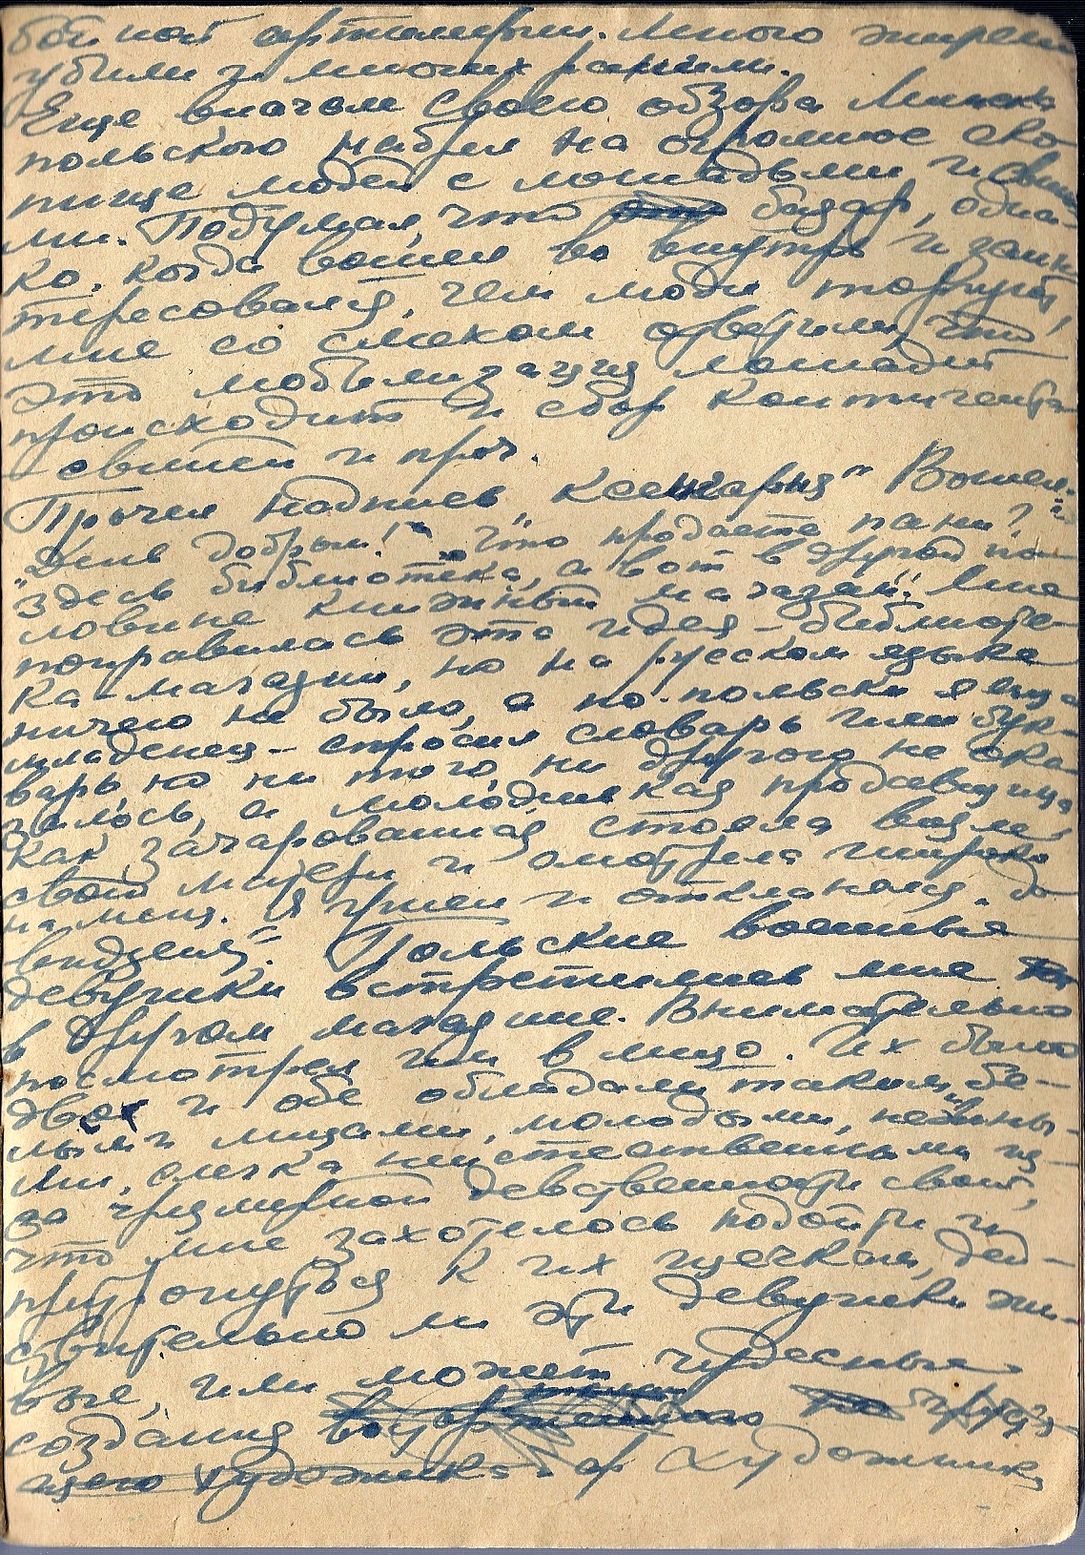 бойной артиллерии. Много
убили и многих ранили.
Еще вначале своего обзора Минска
польского набрел на огромное ско-
пище людей с лошадьми и свинья
ми. Подумал, что базар, одна-
ко, когда вошел во внутрь и заин
тересовался, чем люди торгуют,
мне со смехом ответили, что
это мобылизация лошадей
происходит и сбор контингента
свиней и проч.
Прочел надпись „Ксенгарня" Вошел.
„День добрый!" „Что продаете пани?" „
Здесь библиотека, а вот в другой по-
ловине книжный магазин". Мне
понравилась эта идея – библиоте-
ка-магазин, но на русском языке
ничего не было, а по-польски я еще
младенец – спросил словарь или бук-
варь но ни того, ни другого не ока-
залось, а молоденькая продавщица
как зачарованная стояла возле
своей матери и смотрела широко
на меня. Я ушел и откланялся „до
видзеня". Польские военные
девушки встретились мне
в другом магазине. Внимательно
посмотрел им в лицо. Их было
двое и обе обладали такими бе-
лыми лицами, молодыми, невинны-
ми, слегка неестественными из-
за чрезмерной девственности своей,
что мне захотелось подойти и
притронуться к их щечкам, дей-
ствительно ли эти девушки жи-
вые, или может чудесные
создания
щего художника художника